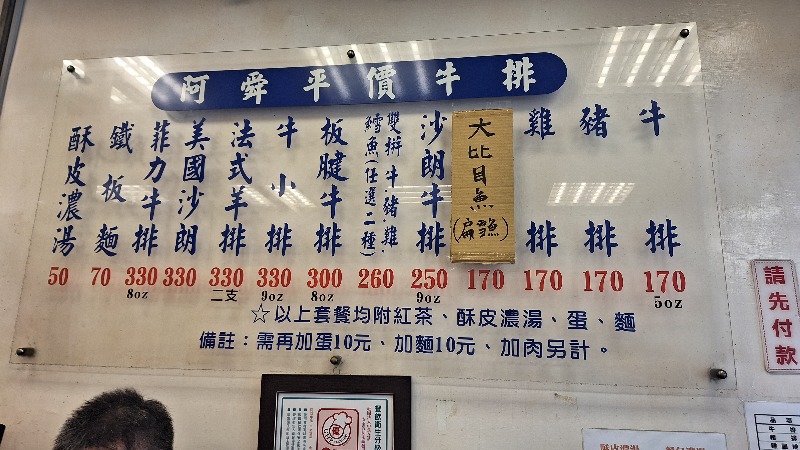 阿舜平價牛排
牛排 170 5oz
豬排 170
雞排 170
大比目魚(扁鱈) 170
沙朗牛排 250 9oz
雙拼牛.豬.雞.鱈魚(任選二種) 260
板腱牛排 300 8oz
牛小排 330 9oz
法式羊排 330 二支
美國沙朗 330
菲力牛排 330 8oz
鐵板麵 70
酥皮濃湯 50
☆以上套餐均附紅茶、酥皮濃湯、蛋、麵
備註：需再加蛋10元、加麵10元、加肉另計。
請先付款